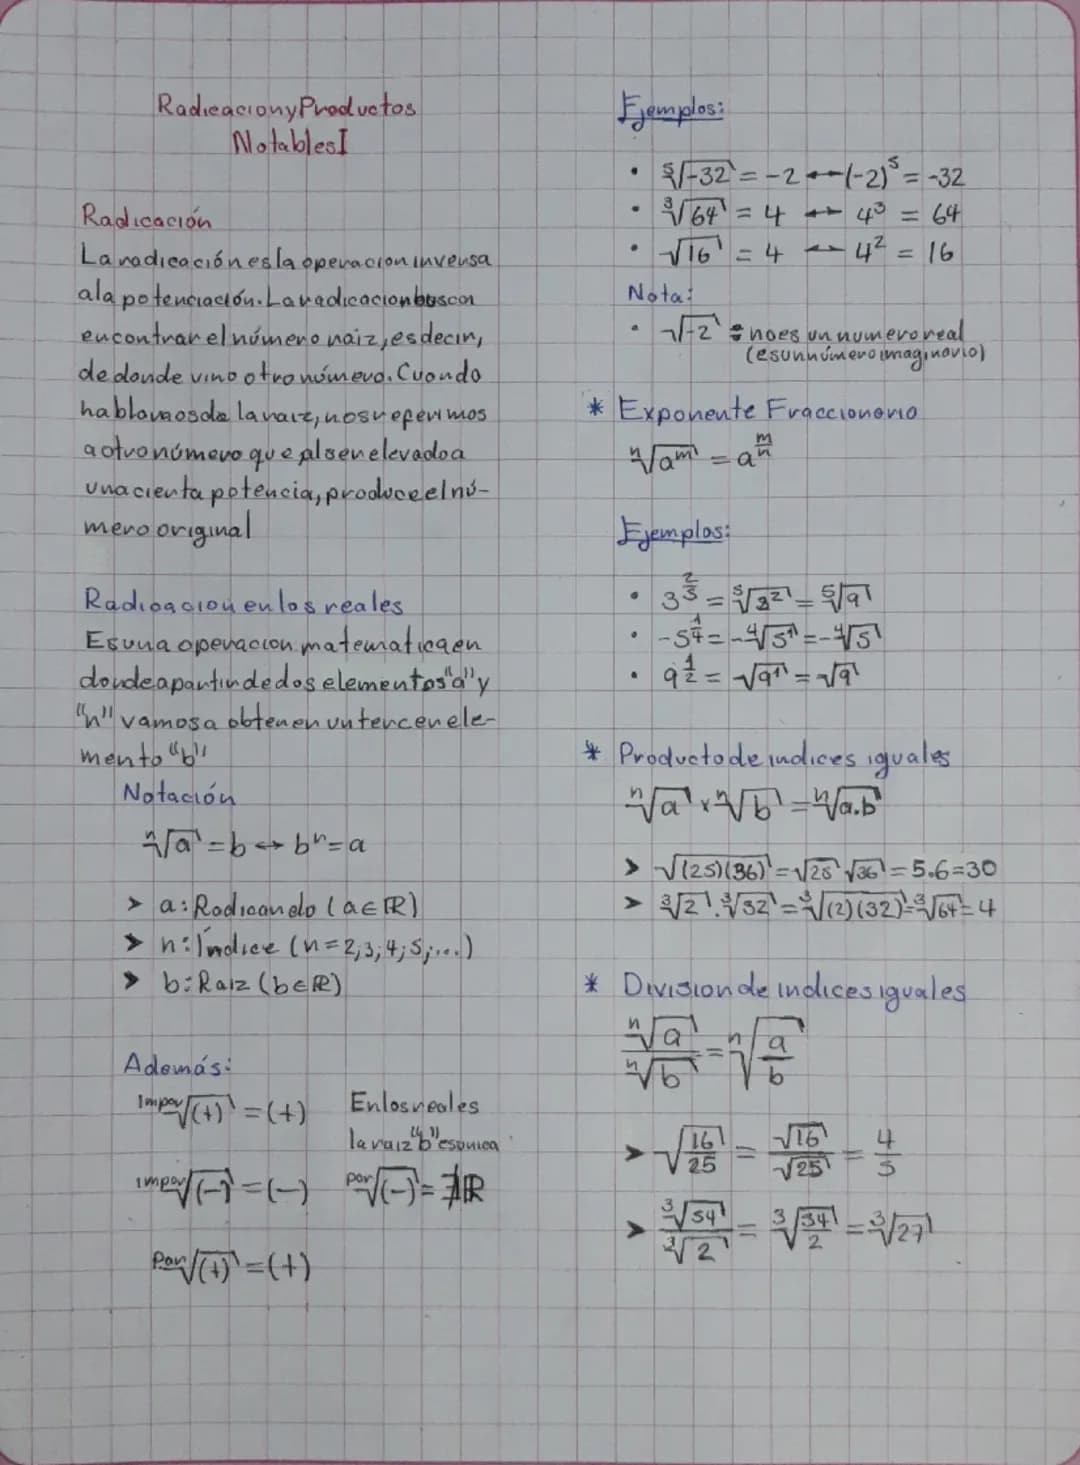 Radicación y Productos
Notables I
Radicación
La radicación es la operacion inversa
a la potenciación. La radicacion busca
encontrar el número raiz, es decir,
de donde vino otro número. Cuando
hablamos de la raiz, nos referimos
a otro número que al ser elevado a
una cierta potencia, produce el nú-
mero original
Radicacion en los reales
Es una operacion matematica en
donde a partir de dos elementos "a" y
"n" vamos a obtener un tercer ele-
mento "b"
Notación
ⁿ√a = b ↔ bⁿ = a
➤ a: Radicando (a∈ℝ)
➤ n: Índice (n=2;3;4;5;....)
➤ b: Raiz (b∈ℝ)
Además:
impar√(+) = (+)
En los reales
la raiz "b" es unica
impar√(-) = (-)
par√(-) = ∄ℝ
Par√(+) = (+)
Ejemplos:
• ⁵√-32 = -2 ↔ (-2)⁵ = -32
• ³√64 = 4 ↔ 4³ = 64
• √16 = 4 ↔ 4² = 16
Nota:
• √-2 = no es un numero real
(es un número imaginario)
* Exponente Fraccionario
ⁿ√a^m = a^(m/n)
Ejemplos:
• 3^(2/5) = ⁵√3² = ⁵√9
• -5^(1/4) = -⁴√5¹ = -⁴√5
• 9^(1/2) = √9¹ = √9
* Producto de indices iguales
ⁿ√a × ⁿ√b = ⁿ√a.b
➤ √(25)(36) = √25 √36 = 5.6=30
➤ ³√2 . ³√32 = ³√(2)(32) = ³√64 = 4
* Division de indices iguales
ⁿ√a / ⁿ√b = ⁿ√(a/b)
➤ √(16/25) = √16/√25 = 4/5
➤ ³√54 / ³√2 = ³√(54/2) = ³√27